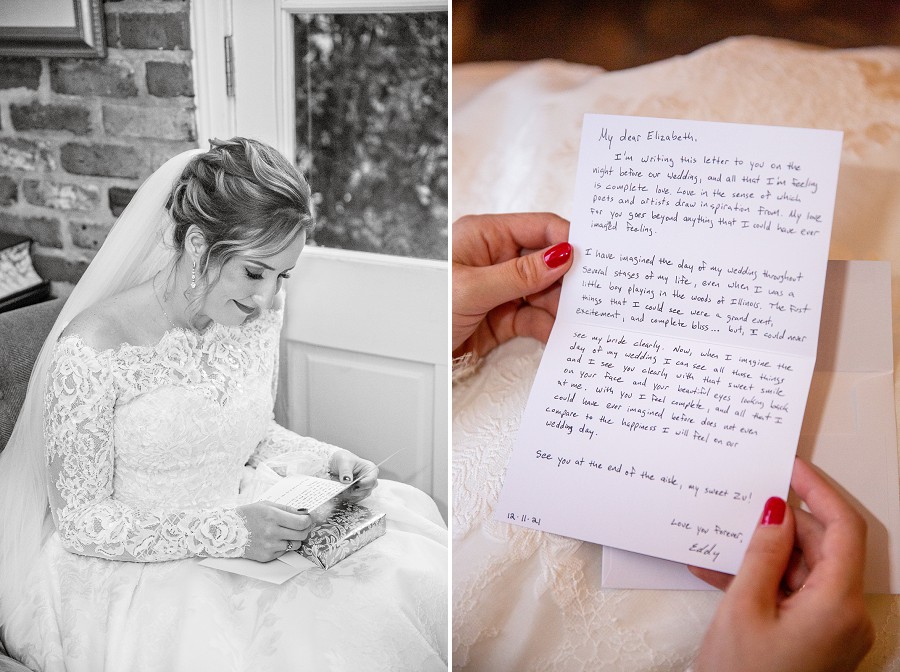 My dear Elizabeth.
I'm writing this letter to you on the
night before our wedding, and all that I'm feeling
is complete love. Love in the sense of which
poets and artists draw inspiration from. My love
for you goes beyond anything that I could have ever
imaged feeling.
I have imagined the day of my wedding throughout
several stages of my life, even when I was a
little boy playing in the woods of Illinois. The first
things that I could see were a grand event,
excitement, and complete bliss... but, I could never
see my bride clearly. Now, when I imagine the
day of my wedding I can see all those things
and I see you clearly with that sweet smile
on your face and your beautiful eyes looking back
at me. With you I feel complete, and all that I
could have ever imagined before does not even
compare to the happiness I will feel on our
wedding day.
See you at the end of the aisle, my sweet Zu!
12.11.21
Love you forever,
Eddy